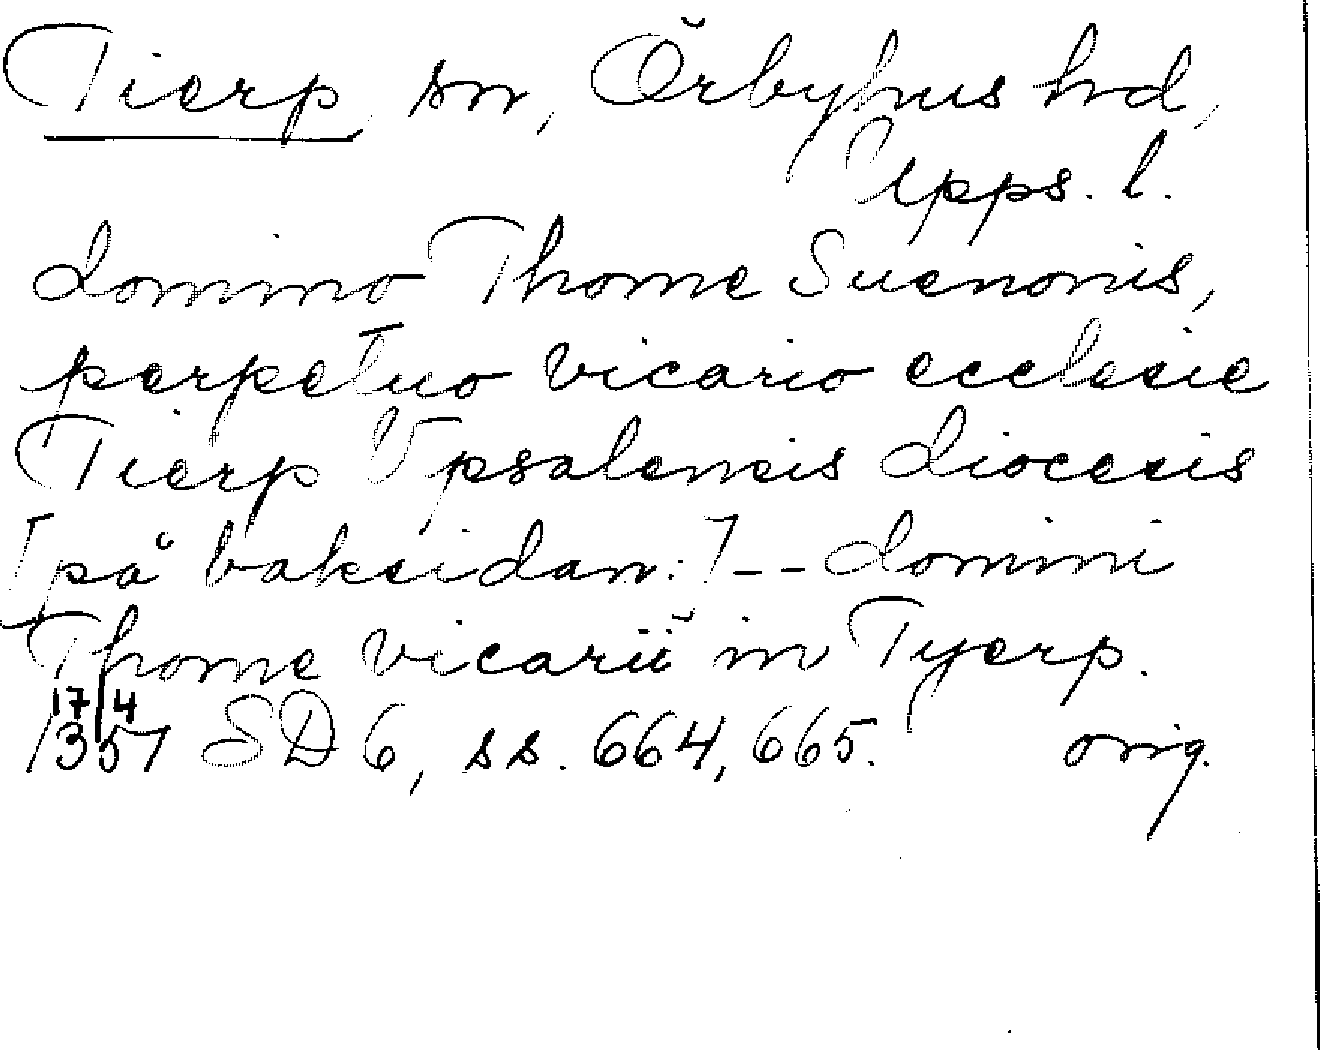 Tierp sn, Örbyhus hd,
Upps. l.
domino Thome Suenonis,
perpetuo vicario ecclesie
Tierp Vpsalensis diocesis
[på baksidan:] -- domini
Thome vicarii in Tyerp.
17/4
1357 SD 6, ss. 664, 665. orig.